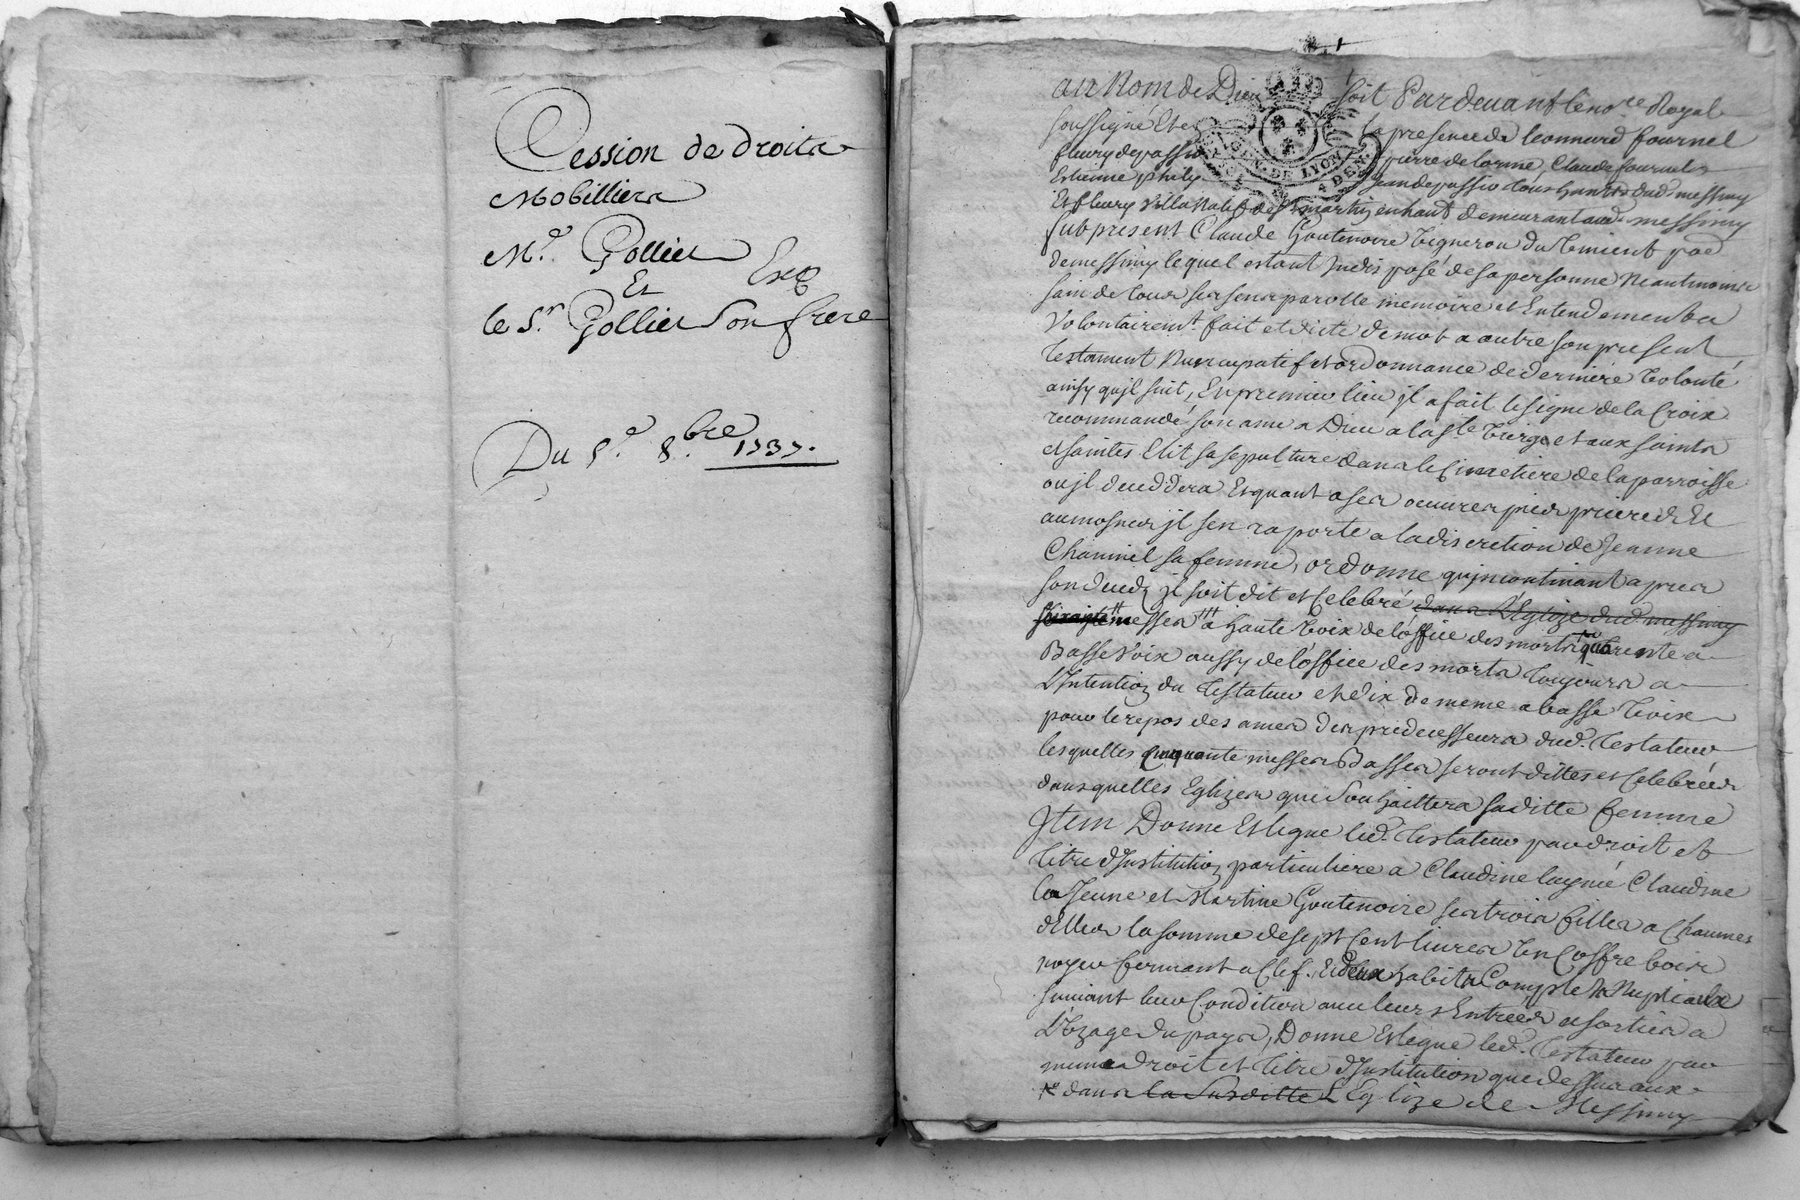 Cession de droits
Mobilliers
Me. Gollier
Et Exp
le Sr. Gollier son frere
Du 5e. 8.bre 1737.
au Nom de Dieu soit Pardevant le no.re Royal
soussigné Et en la presence de leonnard fournel
fleury depassio pierre delorme, Claude fournel
Estienne phily Jean depassio tous hants dud messimy
Et fleury Villa Natif de St martin en haut demeurant aud. messimy
fut present Claude Goutenoire Vigneron du paē
de messimy lequel estant Indisposé de sa personne Neantmoins
sain de tous ses sens parolle memoire et Entendement a
Volontairemt. fait et dicté de mot a autre son present
testament Nuncupatif et ordonnance de derniere volonté
ainsy qu'jl suit, En premier lieu jl a fait le signe de la Croix
recommandé son ame a Dieu a la ste. Vierge et aux saints
et saintes Elit sa sepulture dans le Cimetiere de la parroisse
ou jl deceddera Et quant a ses oeuvres pies prieres Et
aumosnes jl s'en raporte a la discretion de Jeanne
Chaninel sa femme, ordonne qu'jncontinant apres
son deceds jl soit dit et Celebré dans L'Eglize dud messimy
soixante messes a haute voix de l'office des morts quarente a
Basse Voix aussy de l'office des morts toujours a
L'Intention du testateur et dix de meme a basse voix
pour le repos des ames des predecesseurs dud. testateur
lesquelles Cinquante messes Basses seront dittes et Celebrées
dans quelles Eglizes que souhaittera saditte femme
Jtem Donne Et legue led. testateur par droit et
titre d'Institution particuliere a Claudine laynée Claudine
la Jeune et Martine Goutenoire ses trois filles a Chaunes
d'Elles la somme de sept Cent livres Un Coffre bois
noyer fermant a Clef, Et deux habits Complets Nuptiaux
suivant leur Condition avec leurs Entrées et sorties a
L'Uzage du pays, Donne Et legue led. testateur par
mesme droit et titre d'Institution que dessus aux
dans la susditte L'Eglize de Messimy